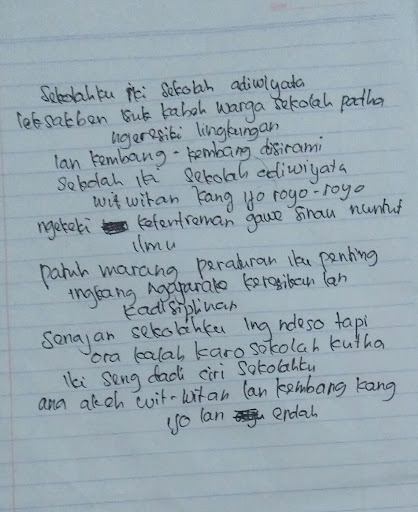 Sekolahku iki sekolah adiwiyata
saben isuk kabeh warga sekolah padha
ngeresiki lingkungan
lan kembang-kembang disirami
Sekolah iki sekolah adiwiyata
wit witan kang ijo royo-royo
ngeteki ketentreman gawe sinau nuntut
ilmu
patuh marang peraturan iku penting
kanggo keresikan lan
kadisiplinan
Senajan sekolahku ing ndeso tapi
ora kalah karo sekolah kutha
iki seng dadi ciri sekolahku
ana akeh wit-witan lan kembang kang
ijo lan endah